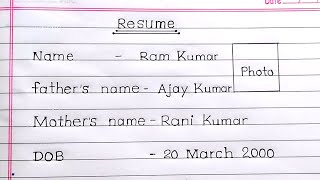 Date
Resume
Name - Ram Kumar
Photo
father's name - Ajay Kumar
Mother's name - Rani Kumar
DOB - 20 March 2000